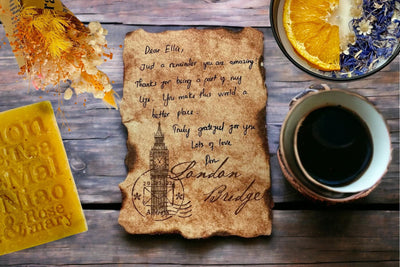 Dear Ella,
Just a reminder you are amazing
Thanks for being a part of my
life. You make this world a
better place.
Truly grateful for you
Lots of love
London
Bridge
Rose
& mary